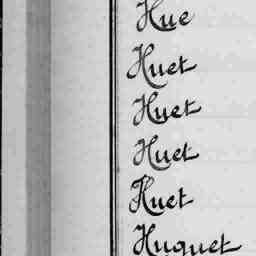 Hue
Huet
Huet
Huet
Huet
Huguet